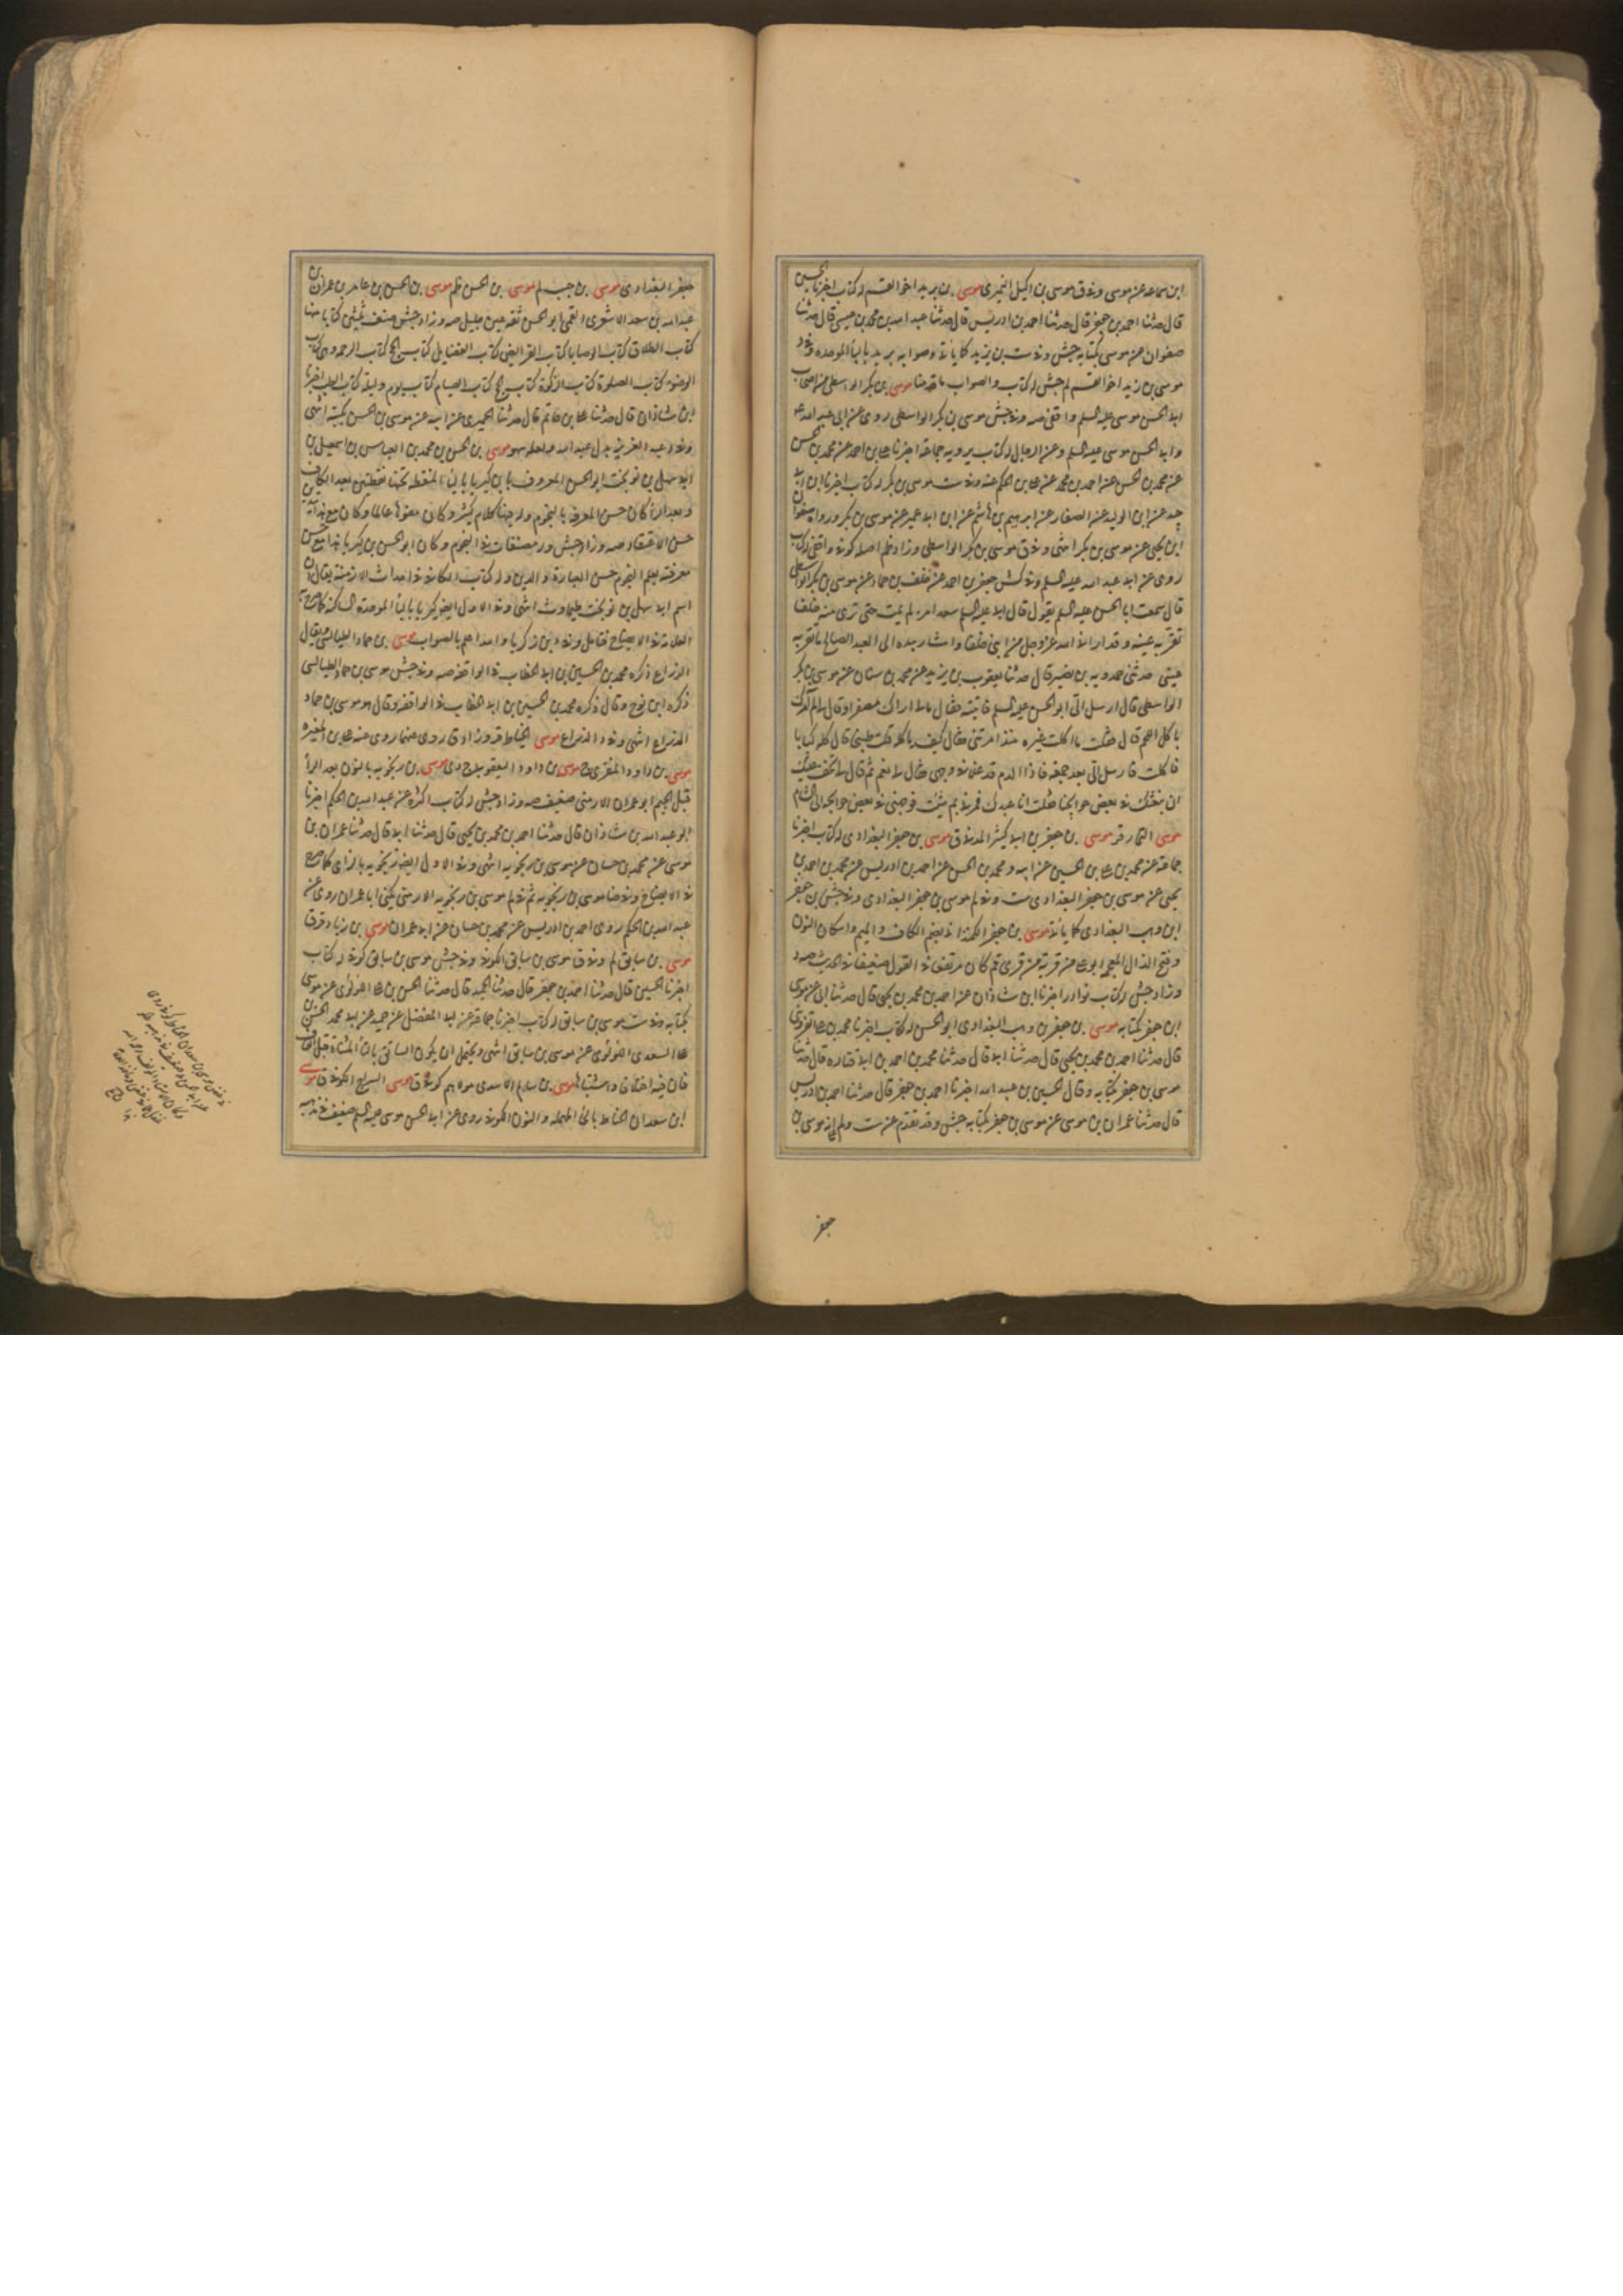 ابن سماعه عن موسى وفى ق موسى بن اكيل النميرى موسى بن بريد اخو القسم له كتاب اخبرنا الحسين
قال حدثنا احمد بن جعفر قال حدثنا احمد بن ادريس قال حدثنا عبد الله بن محمد بن عيسى قال حدثنا
صفوان عن موسى بكتابه جش وفى ست بن يزيد كما يأتى وصوابه بريد بالباء الموحده وفى د
موسى بن زيد اخو القسم لم جش له كتاب والصواب ما قدمنا موسى بن بكر الواسطى من اصحاب
ابى الحسن موسى عليه السلم واقفى صه وفى جش موسى بن بكر الواسطى روى عن ابى عبد الله
وابى الحسن موسى عليه السلم وعن الرجال له كتاب يرويه جماعة اخبرنا على بن احمد عن محمد بن الحسن
عن محمد بن الحسن عن احمد بن محمد عن على بن الحكم عنه وفى ست موسى بن بكر له كتاب اخبرنا ابن ابى
جيد عن ابن الوليد عن الصفار عن ابرهيم بن هاشم عن ابن ابى عمير عن موسى بن بكر ورواه صفوان
ابن يحيى عن موسى بن بكر انتهى وفى ق موسى بن بكر الواسطى وزاد ظم اصله كوفى واقفى له كتاب
روى عن ابى عبد الله عليه السلم وفى كش جعفر بن احمد عن خلف بن حماد عن موسى بن بكر الواسطى
قال سمعت ابا الحسن عليه السلم يقول قال ابى عليه السلم سعد امرء لم يمت حتى ترى منه خلفا
تقر به عينه وقد ارانى الله عز وجل من ابنى خلفا واشار بيده الى العبد الصالح ما تقر به
عينى حدثنى حمدويه بن نصير قال حدثنا يعقوب بن يزيد عن محمد بن سنان عن موسى بن بكر
الواسطى قال ارسل الى ابو الحسن عليه السلم فاتيته فقال مالى اراك مصفرا وقال الم آمرك
باكل اللحم قال فقلت ما اكلت غيره منذ امرتنى فقال كيف تاكله قلت طبيخا قال كله كبابا
فاكلت فارسل الى بعد جمعة فاذا الدم قد عاد فى وجهى فقال لى نعم ثم قال لى يخف عليك
ان نبعثك فى بعض حوايجنا فقلت انا عبدك فمرنى بم شئت فوجهنى فى بعض حوايجه الى الشام
موسى التمار قر موسى بن جعفر بن ابى كثير المدنى ق موسى بن جعفر البغدادى له كتاب اخبرنا
جماعة عن محمد بن على بن الحسين عن ابيه ومحمد بن الحسن عن احمد بن ادريس عن محمد بن احمد بن
يحيى عن موسى بن جعفر البغدادى ست وفى لم موسى بن جعفر البغدادى وفى جش بن جعفر
ابن وهب البغدادى كما يأتى موسى بن جعفر الكمنذانى بضم الكاف والميم واسكان النون
وفتح الذال المعجمه ابو على من قرية من قرى قم كان مرتفعا فى القول ضعيفا فى الحديث صه د
وزاد جش له كتاب نوادر اخبرنا ابن شاذان عن احمد بن محمد بن يحيى قال حدثنا ابى عن موسى
ابن جعفر بكتابه موسى بن جعفر بن وهب البغدادى ابو الحسن له كتاب اخبرنا محمد بن على القزوينى
قال حدثنا احمد بن محمد بن يحيى قال حدثنا ابى قال حدثنا محمد بن احمد بن ابى قتاده قال حدثنا
موسى بن جعفر بكتابه وقال الحسين بن عبيد الله اخبرنا احمد بن جعفر قال حدثنا احمد بن ادريس
قال حدثنا عمران بن موسى عن موسى بن جعفر بكتابه جش وقد تقدم عن ست ولم انه موسى بن
جعفر
جعفر البغدادى موسى بن جب لم موسى بن الحسن ظم موسى بن الحسن بن عامر بن عمران بن
عبد الله بن سعد الاشعرى القمى ابو الحسن ثقه عين جليل صه وزاد جش صنف ثلثين كتابا منها
كتاب الطلاق كتاب الوصايا كتاب الفرايض كتاب الفضايل كتاب الحج كتاب الرحمه وهى كتاب
الوضوء كتاب الصلوة كتاب الزكوة كتاب الحج كتاب الصيام كتاب يوم وليلة كتاب الطب اخبرنا
ابن شاذان قال حدثنا على بن حاتم قال حدثنا الحميرى عن ابيه عن موسى بن الحسن بكتبه انتهى
وفى د عبد العزيز بدل عبد الله ولعله سهو موسى بن الحسن بن محمد بن العباس بن اسمعيل بن
ابى سهل بن نوبخت ابو الحسن المعروف بابن كبريا بالياء المنقطه تحتها نقطتين بعد الكاف
وبعد الراء كان حسن المعرفه بالنجوم وله فيها كلام كثير وكان مفوها عالما وكان مع هذا يتدين
حسن الاعتقاد صه وزاد جش وله مصنفات فى النجوم وكان ابو الحسن بن كبريا هذا مع حسن
معرفته بعلم النجوم حسن العبادة والدين وله كتاب الكافى فى احداث الازمنة يقال ان
اسم ابى سهل بن نوبخت طيماوث انتهى وفى الاول ايضا كبريا بالباء الموحدة الساكنه كما صرح به
العلامة فى الايضاح فتامل وفى د ابن زكريا والله اعلم بالصواب موسى بن حماد الطيالسى يقال
الذراع ذكره محمد بن الحسين بن ابى الخطاب فى الواقفه صه وفى جش موسى بن حماد الطيالسى
ذكره ابن نوح وقال ذكره محمد بن الحسين بن ابى الخطاب فى الواقفه وقال هو موسى بن حماد
الذراع انتهى وفى د الذراع موسى الخياط قر وزاد ق روى عنهما روى عنه على بن المغيره
موسى بن داود المنقرى ج موسى بن داود اليعقوبى ج دى موسى بن رنجويه بالنون بعد الراء
قبل الجيم ابو عمران الارمنى ضعيف صه وزاد جش له كتاب اكثره عن عبد الله بن الحكم اخبرنا
ابو عبد الله بن شاذان قال حدثنا احمد بن محمد بن يحيى قال حدثنا ابى قال حدثنا عمران بن
موسى عن محمد بن حسان عن موسى بن رنجويه انتهى وفى الاول ايضا زنجويه بالزاى كما صرح
فى الايضاح وفى ضا موسى بن رنجويه ثم فى لم موسى بن رنجويه الارمنى يكنى ابا عمران روى عن
عبد الله بن الحكم روى احمد بن ادريس عن محمد بن حسان عن ابى عمران موسى بن زياد قر ق
موسى بن سابق لم وفى ق موسى بن سابق الكوفى وفى جش موسى بن سابق كوفى له كتاب
اخبرنا الحسين قال حدثنا احمد بن جعفر قال حدثنا حميد قال حدثنا الحسن بن على اللؤلؤى عن موسى
بكتابه وفى ست موسى بن سابق له كتاب اخبرنا جماعة عن ابى المفضل عن حميد عن ابى محمد الحسن بن
على السعدى اللؤلؤى عن موسى بن سابق انتهى ويحتمل ان يكون السائق بالياء المثناة قبل القاف
فان فيه اختلافا واشتباها موسى بن سالم الاسدى مولاهم كوفى ق موسى السراج الكوفى ق موسى
ابن سعدان الحناط بالحاء المهمله والنون الكوفى روى عن ابى الحسن موسى عليه السلم ضعيف فى مذهبه